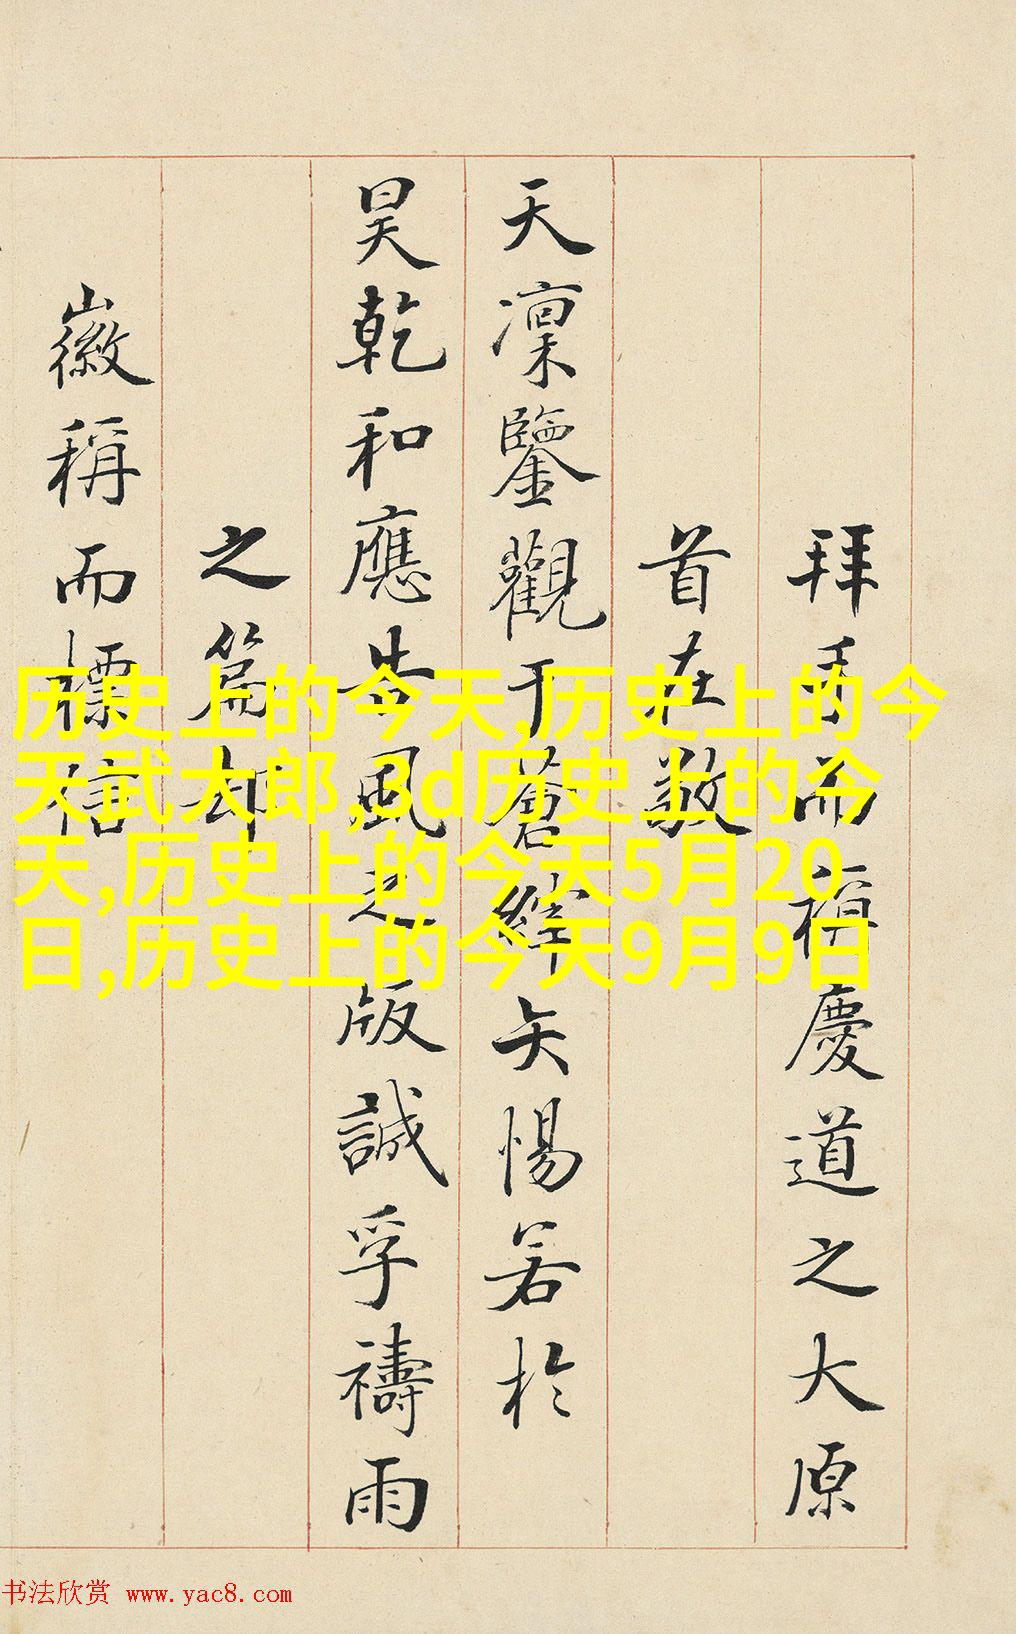 拜手而稱慶道之大原
首在敬
天凜鑒觀于蒼緯矢惕若於
昊乾和應告風之版誠孚禱雨
之篇却
徽稱而標信
历史上的今天,历史上的今
天武大郎,3d历史上的今
天,历史上的今天5月20
日,历史上的今天9月9日
书法欣赏 www.yac8.com